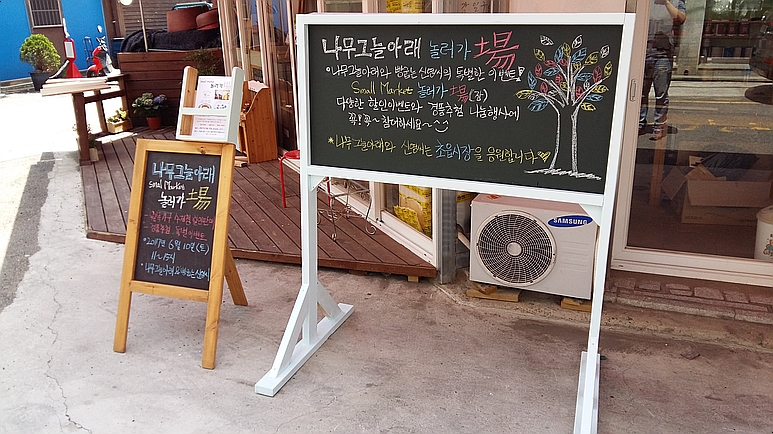 나무그늘아래 놀러가 場
나무그늘아래와 빵굽는 신명씨의 특별한 이벤트
Small Market 놀러가 場(장)
다양한 할인이벤트와 경품추첨 나눔행사에
꼭! 꼭~ 참여하세요~
*나무그늘아래와 신명씨는 초읍시장을 응원합니다
나무그늘아래
Small Market
놀러가 場
경품추첨
2017년 6월 10일(토)
11~15시
SAMSUNG